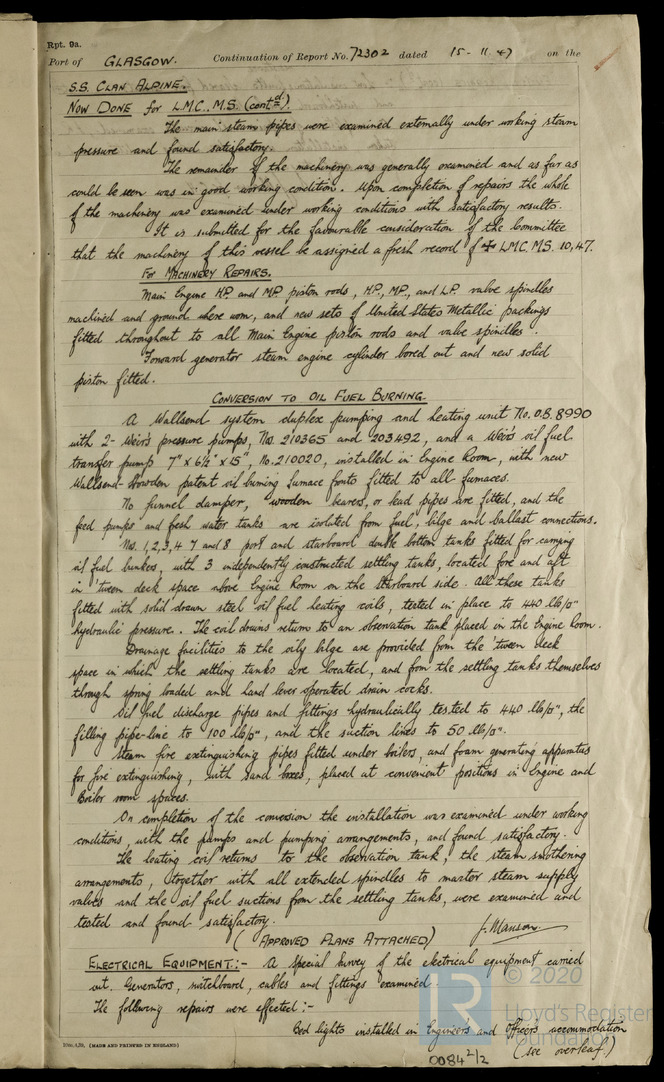 Rpt. 9a.
Port of GLASGOW. Continuation of Report No. 72302 dated 15-11-47 on the
S.S. CLAN ALPINE.
NOW DONE for L.M.C., M.S. (contd).
The main steam pipes were examined externally under working steam
pressure and found satisfactory.
The remainder of the machinery was generally examined and as far as
could be seen was in good working condition. Upon completion of repairs the whole
of the machinery was examined under working conditions with satisfactory results.
It is submitted for the favourable consideration of the Committee
that the machinery of this vessel be assigned a fresh record of ✠ LMC.MS. 10,47.
For MACHINERY REPAIRS.
Main Engine HP. and MP. piston rods, H.P., M.P., and L.P. valve spindles
machined and ground where worn, and new sets of United States Metallic Packings
fitted throughout to all Main Engine piston rods and valve spindles.
Forward generator steam engine cylinder bored out and new solid
piston fitted.
CONVERSION TO OIL FUEL BURNING.
A Wallsend system duplex pumping and heating unit No. O.B. 8990
with 2-Weir's pressure pumps, Nos. 210365 and 203492, and a Weirs oil fuel
transfer pump 7" x 6½" x 15", No. 210020, installed in Engine Room, with new
Wallsend-Howden patent oil burning furnace fronts fitted to all furnaces.
No funnel damper, wooden bearers, or lead pipes are fitted, and the
feed pumps and fresh water tanks are isolated from fuel, bilge and ballast connections.
Nos. 1, 2, 3, 4 7 and 8 port and starboard double bottom tanks fitted for carrying
oil fuel bunkers, with 3 independently constructed settling tanks, located fore and aft
in 'tween deck space above Engine Room on the Starboard side. All these tanks
fitted with solid drawn steel oil fuel heating coils, tested in place to 440 lb/□"
hydraulic pressure. The coil drains return to an observation tank placed in the Engine Room.
Drainage facilities to the oily bilge are provided from the 'tween deck
space in which the settling tanks are located, and from the settling tanks themselves
through spring loaded and hand lever operated drain cocks.
Oil fuel discharge pipes and fittings hydraulically tested to 440 lb/□", the
filling pipe-line to 100 lb/□", and the suction lines to 50 lb/□".
Steam fire extinguishing pipes fitted under boilers, and foam generating apparatus
for fire extinguishing, with sand boxes, placed at convenient positions in Engine and
Boiler room spaces.
On completion of the conversion the installation was examined under working
conditions, with the pumps and pumping arrangements, and found satisfactory.
The heating coil returns to the observation tank, the steam smothering
arrangements, together with all extended spindles to master steam supply
valves and the oil fuel suctions from the settling tanks, were examined and
tested and found satisfactory.
J. Manson
(APPROVED PLANS ATTACHED)
ELECTRICAL EQUIPMENT:- A Special Survey of the electrical equipment carried
out, Generators, switchboard, cables and fittings examined.
The following repairs were effected:-
Bed lights installed in Engineers and Officers accommodation
(see overleaf.)
0084 2/2
(MADE AND PRINTED IN ENGLAND)
© 2020
Lloyd's Register
Foundation
LR